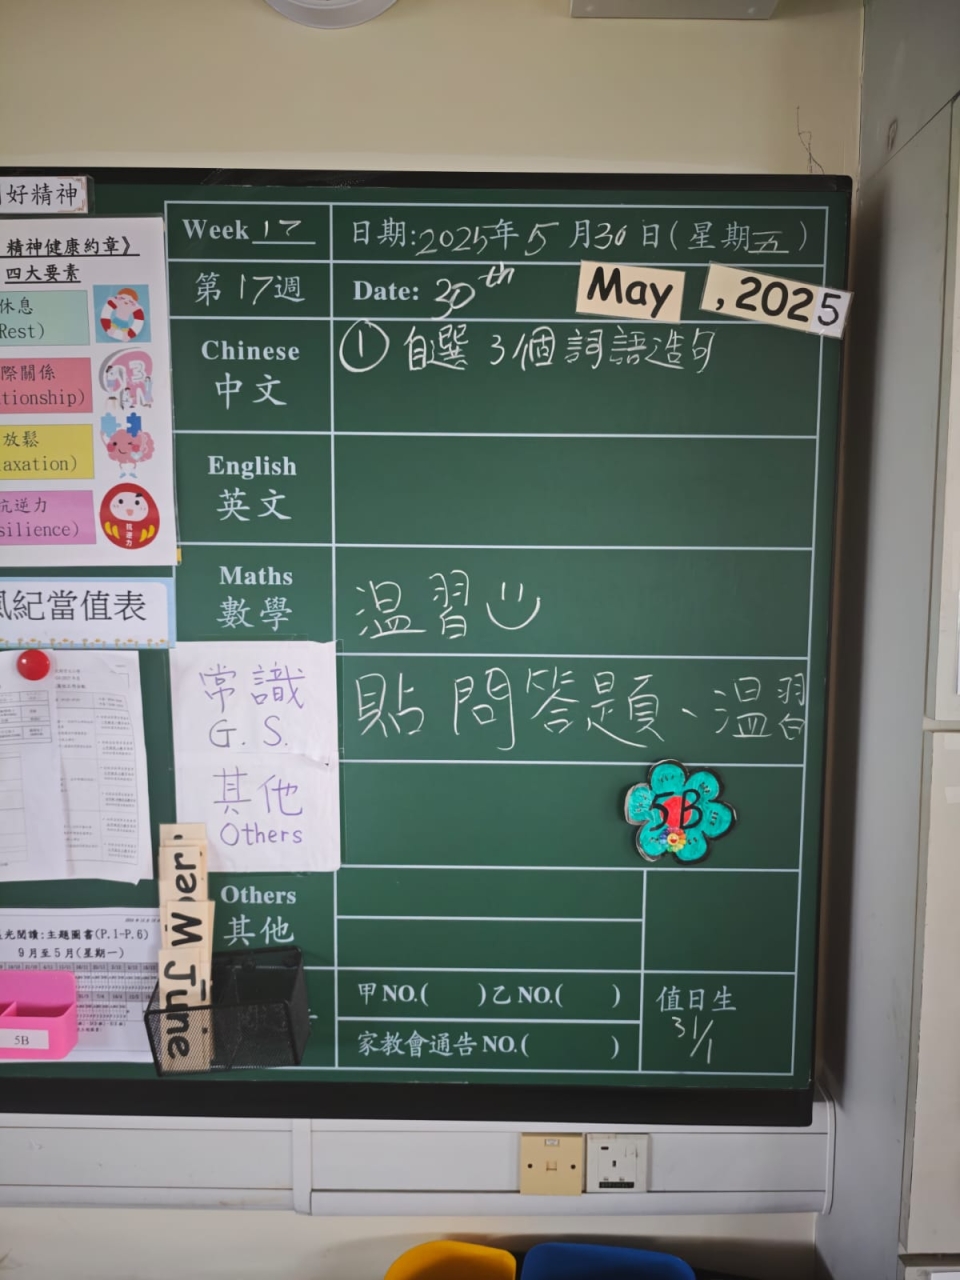 好精神
精神健康約章》
四大要素
休息
Rest)
際關係
tionship)
放鬆
axation)
抗逆力
silience)
抗逆力
風紀當值表
Week 17
日期:2025年5月30日(星期五)
第17週
Date: 30th May , 2025
Chinese
中文
① 自選3個詞語造句
English
英文
Maths
數學
温習
常識
G.S.
貼問答題、温習
其他
Others
5B
Others
其他
甲NO.( )乙NO.( )
家教會通告NO.( )
值日生
31/1
光閱讀:主題圖書(P.1-P.6)
9月至5月(星期一)
5B
ber
W
June